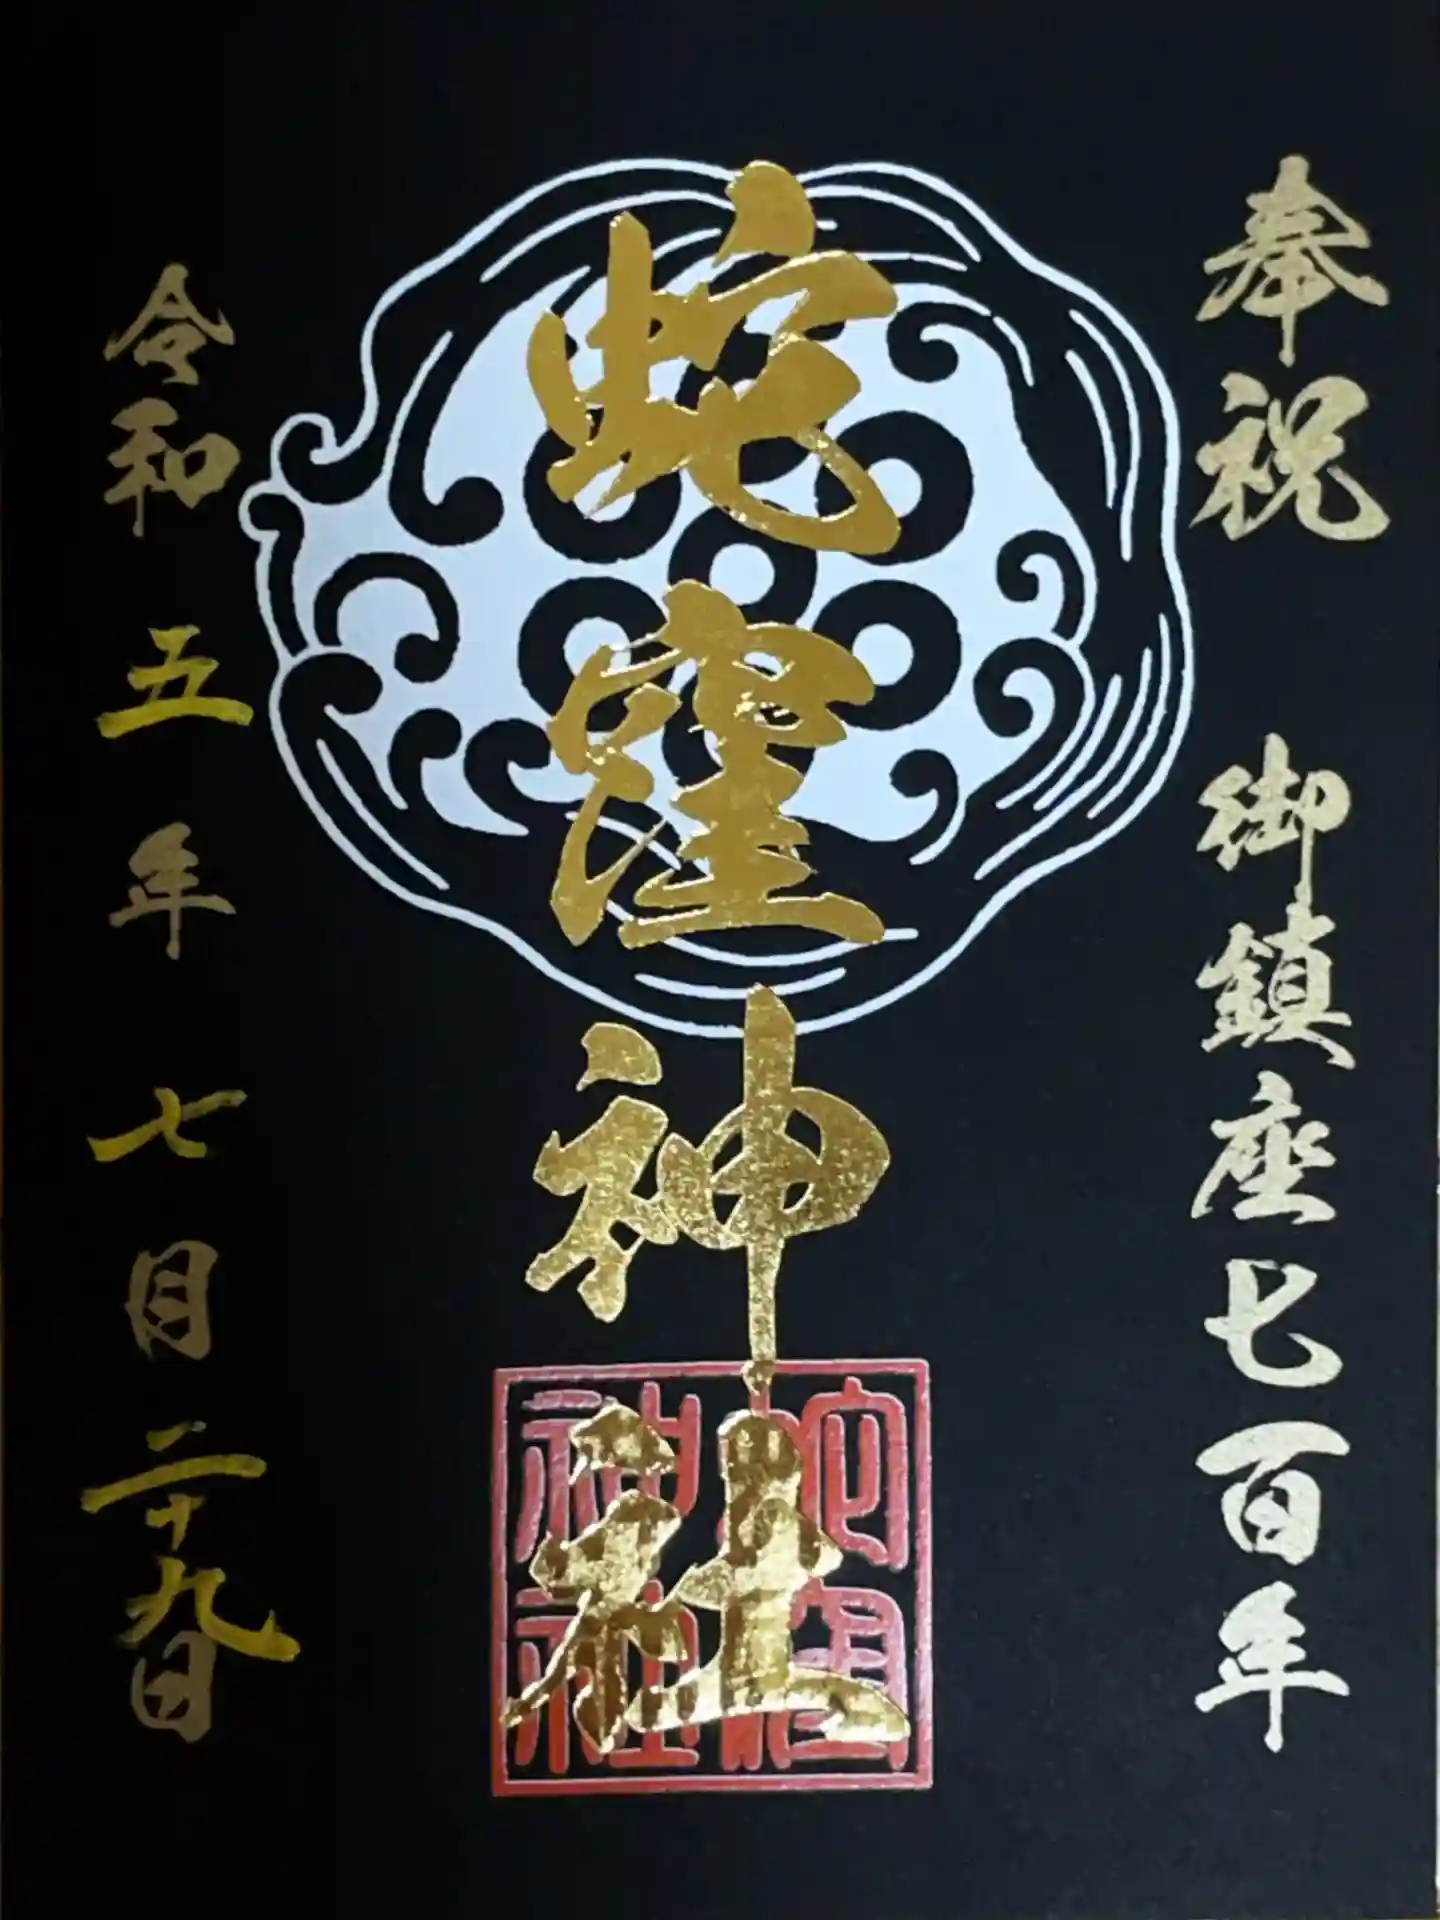 奉祝 御鎮座七百年
蛇窪神社
蛇窪神社
令和五年七月二十九日